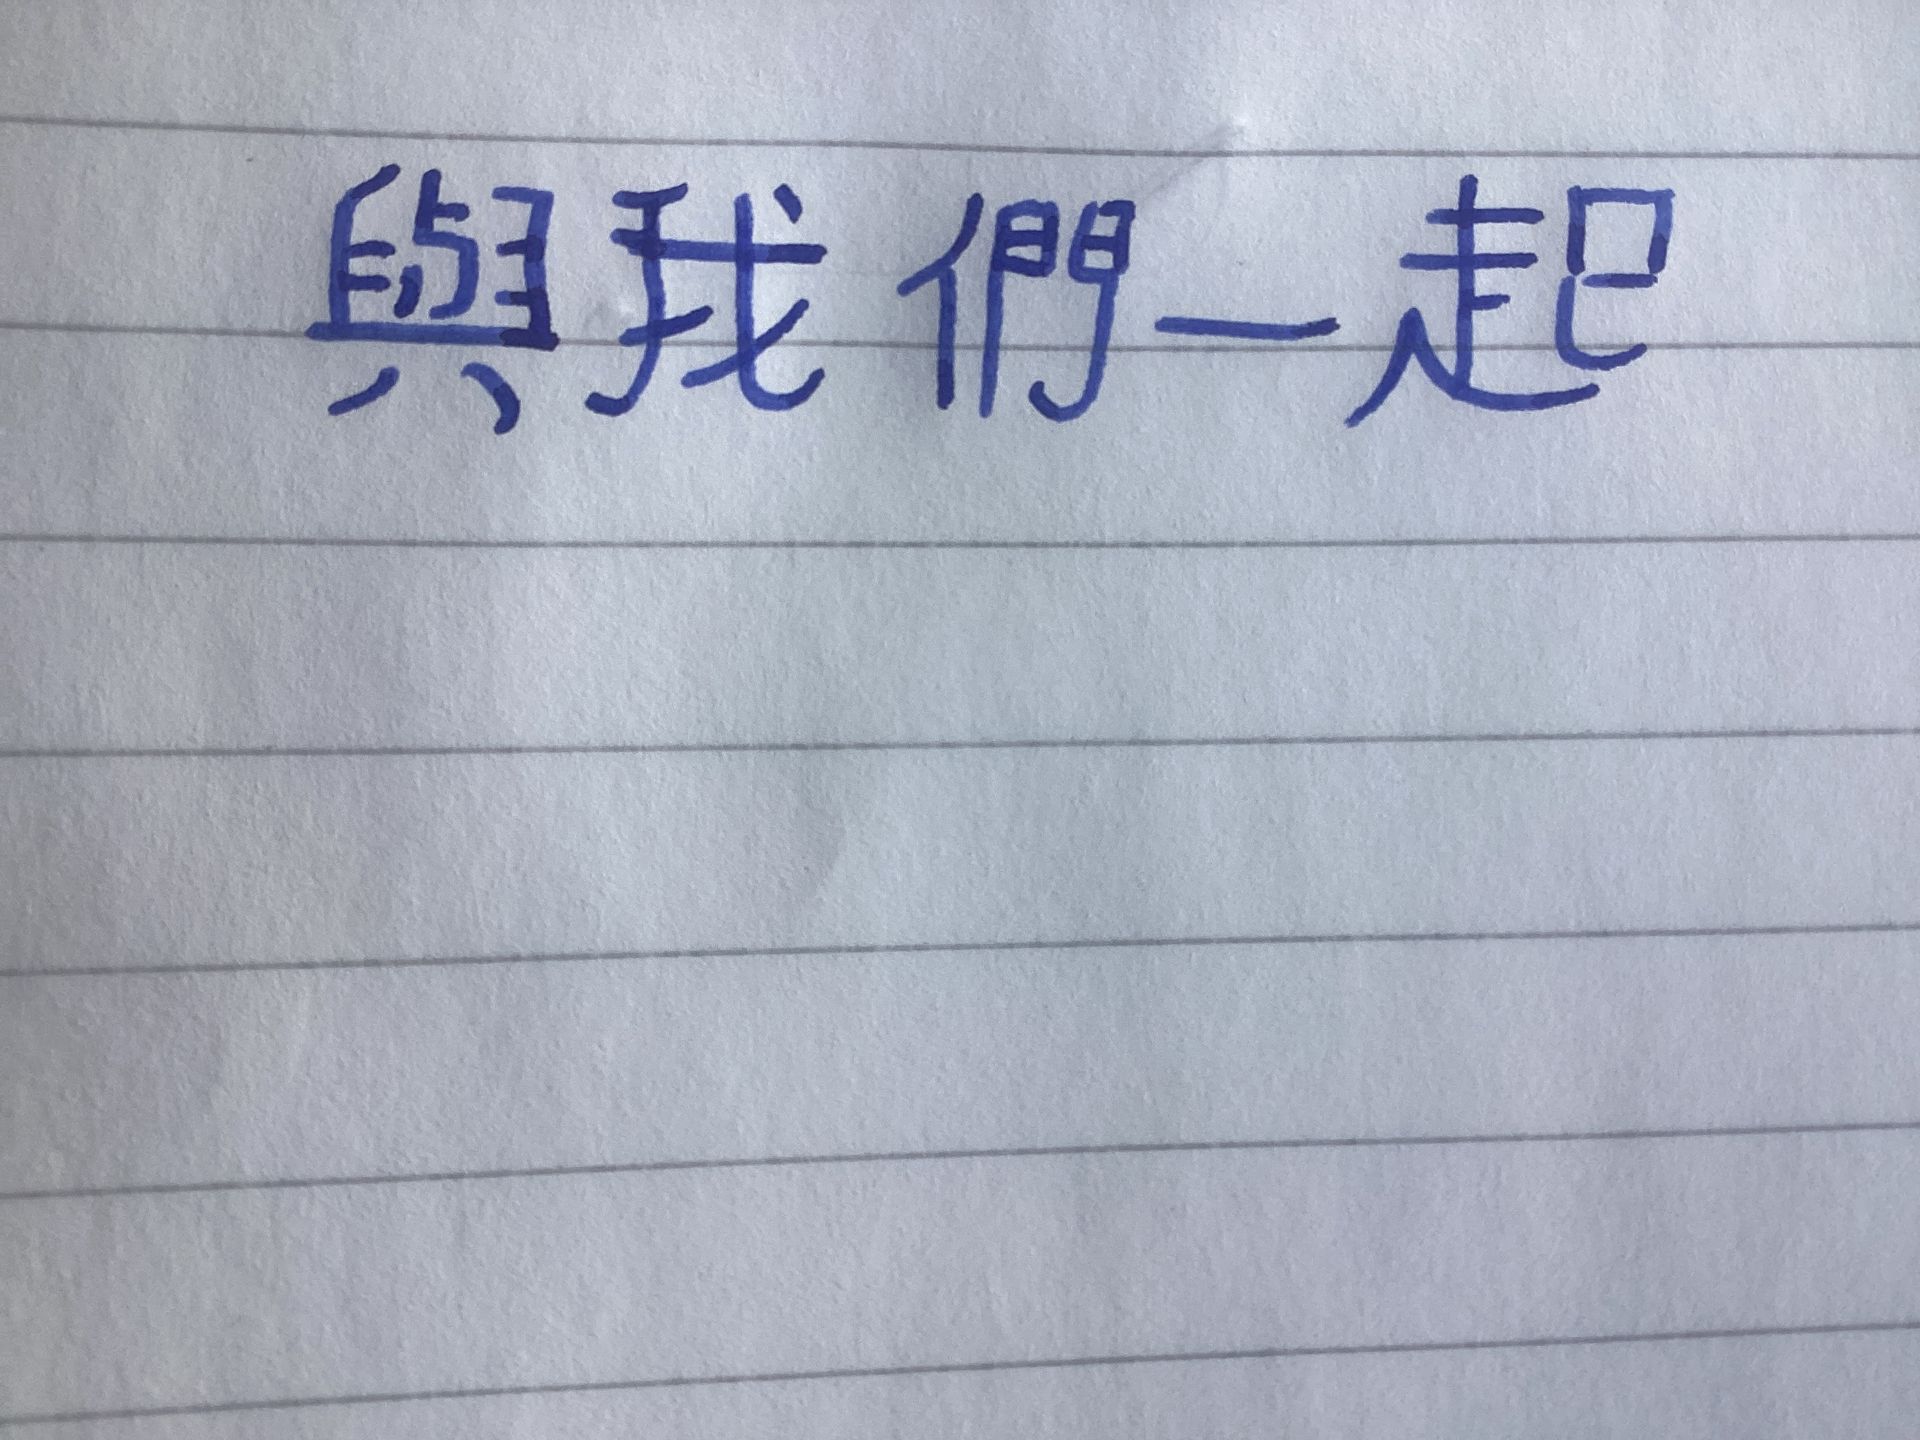 與我們一起